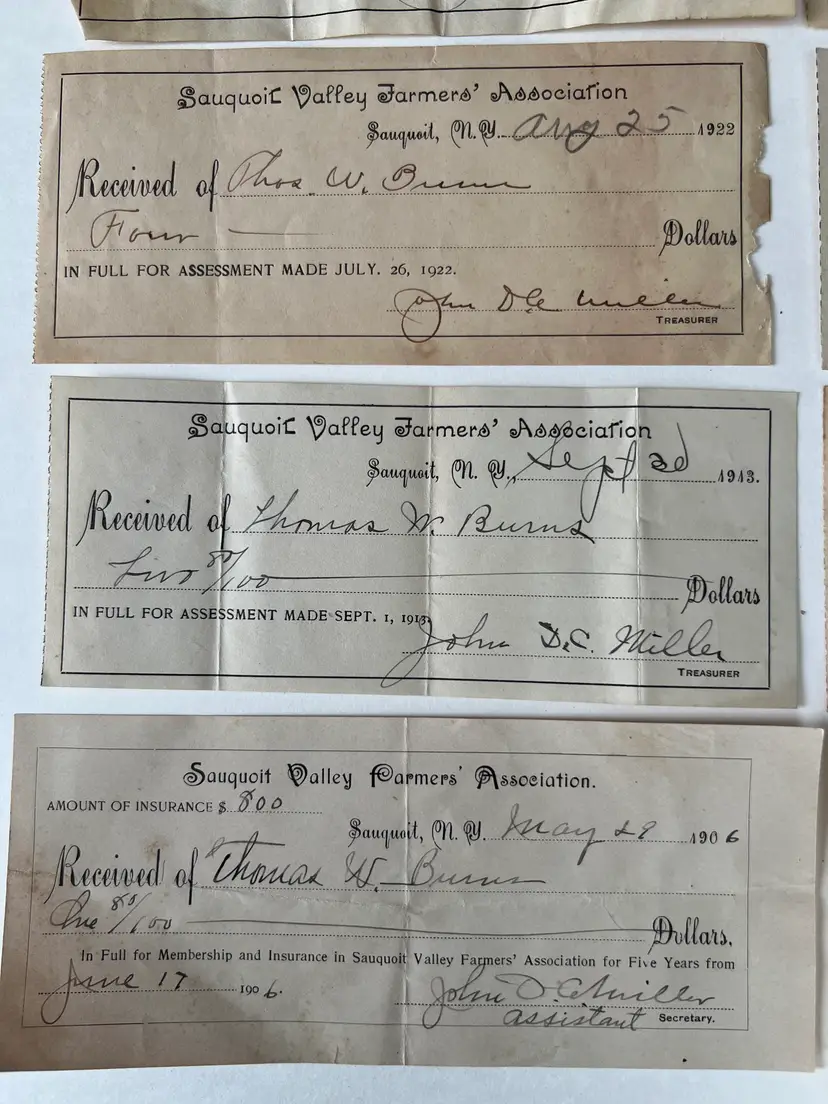 Sauquoit Valley Farmers' Association
Sauquoit, N. Y. Aug 25 1922
Received of Thos. W. Burns
Four Dollars
IN FULL FOR ASSESSMENT MADE JULY. 26, 1922.
John D.C. Miller
TREASURER
Sauquoit Valley Farmers' Association
Sauquoit, N. Y., Sept 30 1913.
Received of Thomas W. Burns
Two 80/100 Dollars
IN FULL FOR ASSESSMENT MADE SEPT. 1, 1913.
John D.C. Miller
TREASURER
Sauquoit Valley Farmers' Association.
AMOUNT OF INSURANCE $ 800
Sauquoit, N. Y. May 29 1906
Received of Thomas W. Burns
One 80/100 Dollars.
In Full for Membership and Insurance in Sauquoit Valley Farmers' Association for Five Years from
June 17 1906.
John D.C. Miller
assistant Secretary.